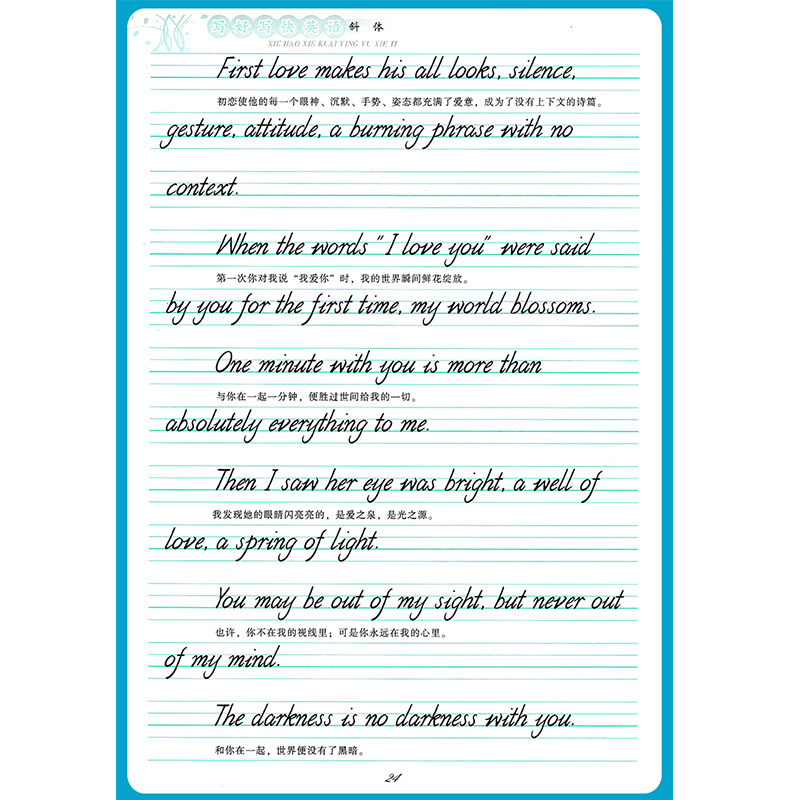 写好写快英语 斜体
XIE HAO XIE KUAI YING YU XIE TI
First love makes his all looks, silence,
初恋使他的每一个眼神、沉默、手势、姿态都充满了爱意，成为了没有上下文的诗篇。
gesture, attitude, a burning phrase with no
context.
When the words "I love you" were said
第一次你对我说“我爱你”时，我的世界瞬间鲜花绽放。
by you for the first time, my world blossoms.
One minute with you is more than
与你在一起一分钟，便胜过世间给我的一切。
absolutely everything to me.
Then I saw her eye was bright, a well of
我发现她的眼睛闪亮亮的，是爱之泉，是光之源。
love, a spring of light.
You may be out of my sight, but never out
也许，你不在我的视线里；可是你永远在我的心里。
of my mind.
The darkness is no darkness with you.
和你在一起，世界便没有了黑暗。
24